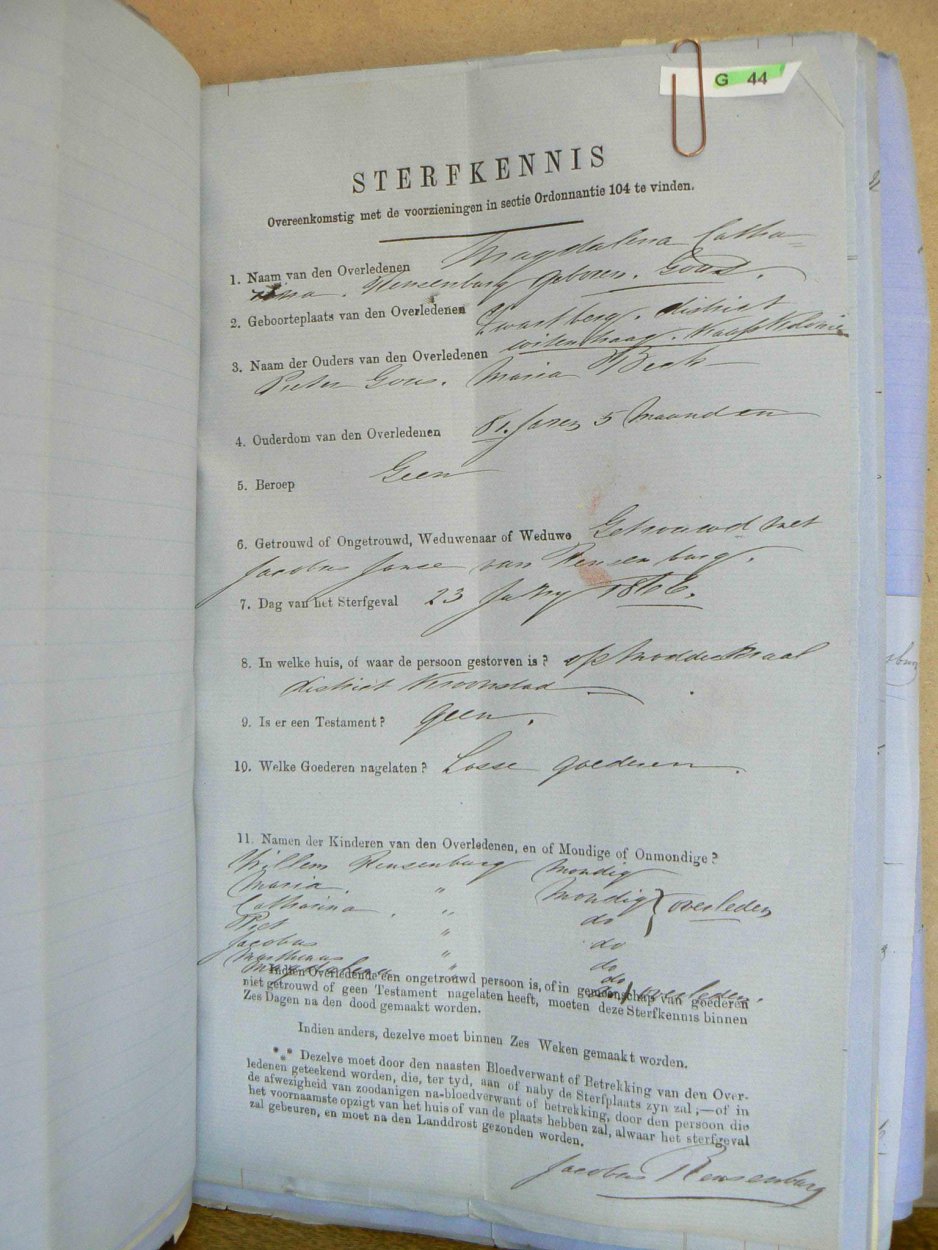 G 44
STERFKENNIS
Overeenkomstig met de voorzieningen in sectie Ordonnantie 104 te vinden.
1. Naam van den Overledenen Magdalena Catha-
rina. Rensenburg geboren. Gous.
2. Geboorteplaats van den Overledenen Zwartberg. district
uitenhaag. Kaap Kolonie
3. Naam der Ouders van den Overledenen
Pieter Gous. Maria
4. Ouderdom van den Overledenen 81. Jaren 5 Maanden
5. Beroep Geen
6. Getrouwd of Ongetrouwd, Weduwenaar of Weduwe Getrouwd met
Jacobus Janse van Rensenburg.
7. Dag van het Sterfgeval 23
8. In welke huis, of waar de persoon gestorven is? op Modderkraal
district Kroonstad
9. Is er een Testament? geen.
10. Welke Goederen nagelaten? Losse goederen.
11. Namen der Kinderen van den Overledenen, en of Mondige of Onmondige?
Willem Rensenburg Mondig
Maria. " Mondig } overleden
Catharina. " do
Piet " do
Jacobus " do
Marthinus " do
Magdalena do overleden.
Indien Overledende een ongetrouwd persoon is, of in gemeenschap van goederen
niet getrouwd of geen Testament nagelaten heeft, moeten deze Sterfkennis binnen
Zes Dagen na den dood gemaakt worden.
Indien anders, dezelve moet binnen Zes Weken gemaakt worden.
*** Dezelve moet door den naasten Bloedverwant of Betrekking van den Over-
ledenen geteekend worden, die, ter tyd, aan of naby de Sterfplaats zyn zal;—of in
de afwezigheid van zoodanigen na-bloedverwant of betrekking, door den persoon die
het voornaamste opzigt van het huis of van de plaats hebben zal, alwaar het sterfgeval
zal gebeuren, en moet na den Landdrost gezonden worden.
Jacobus Rensenburg